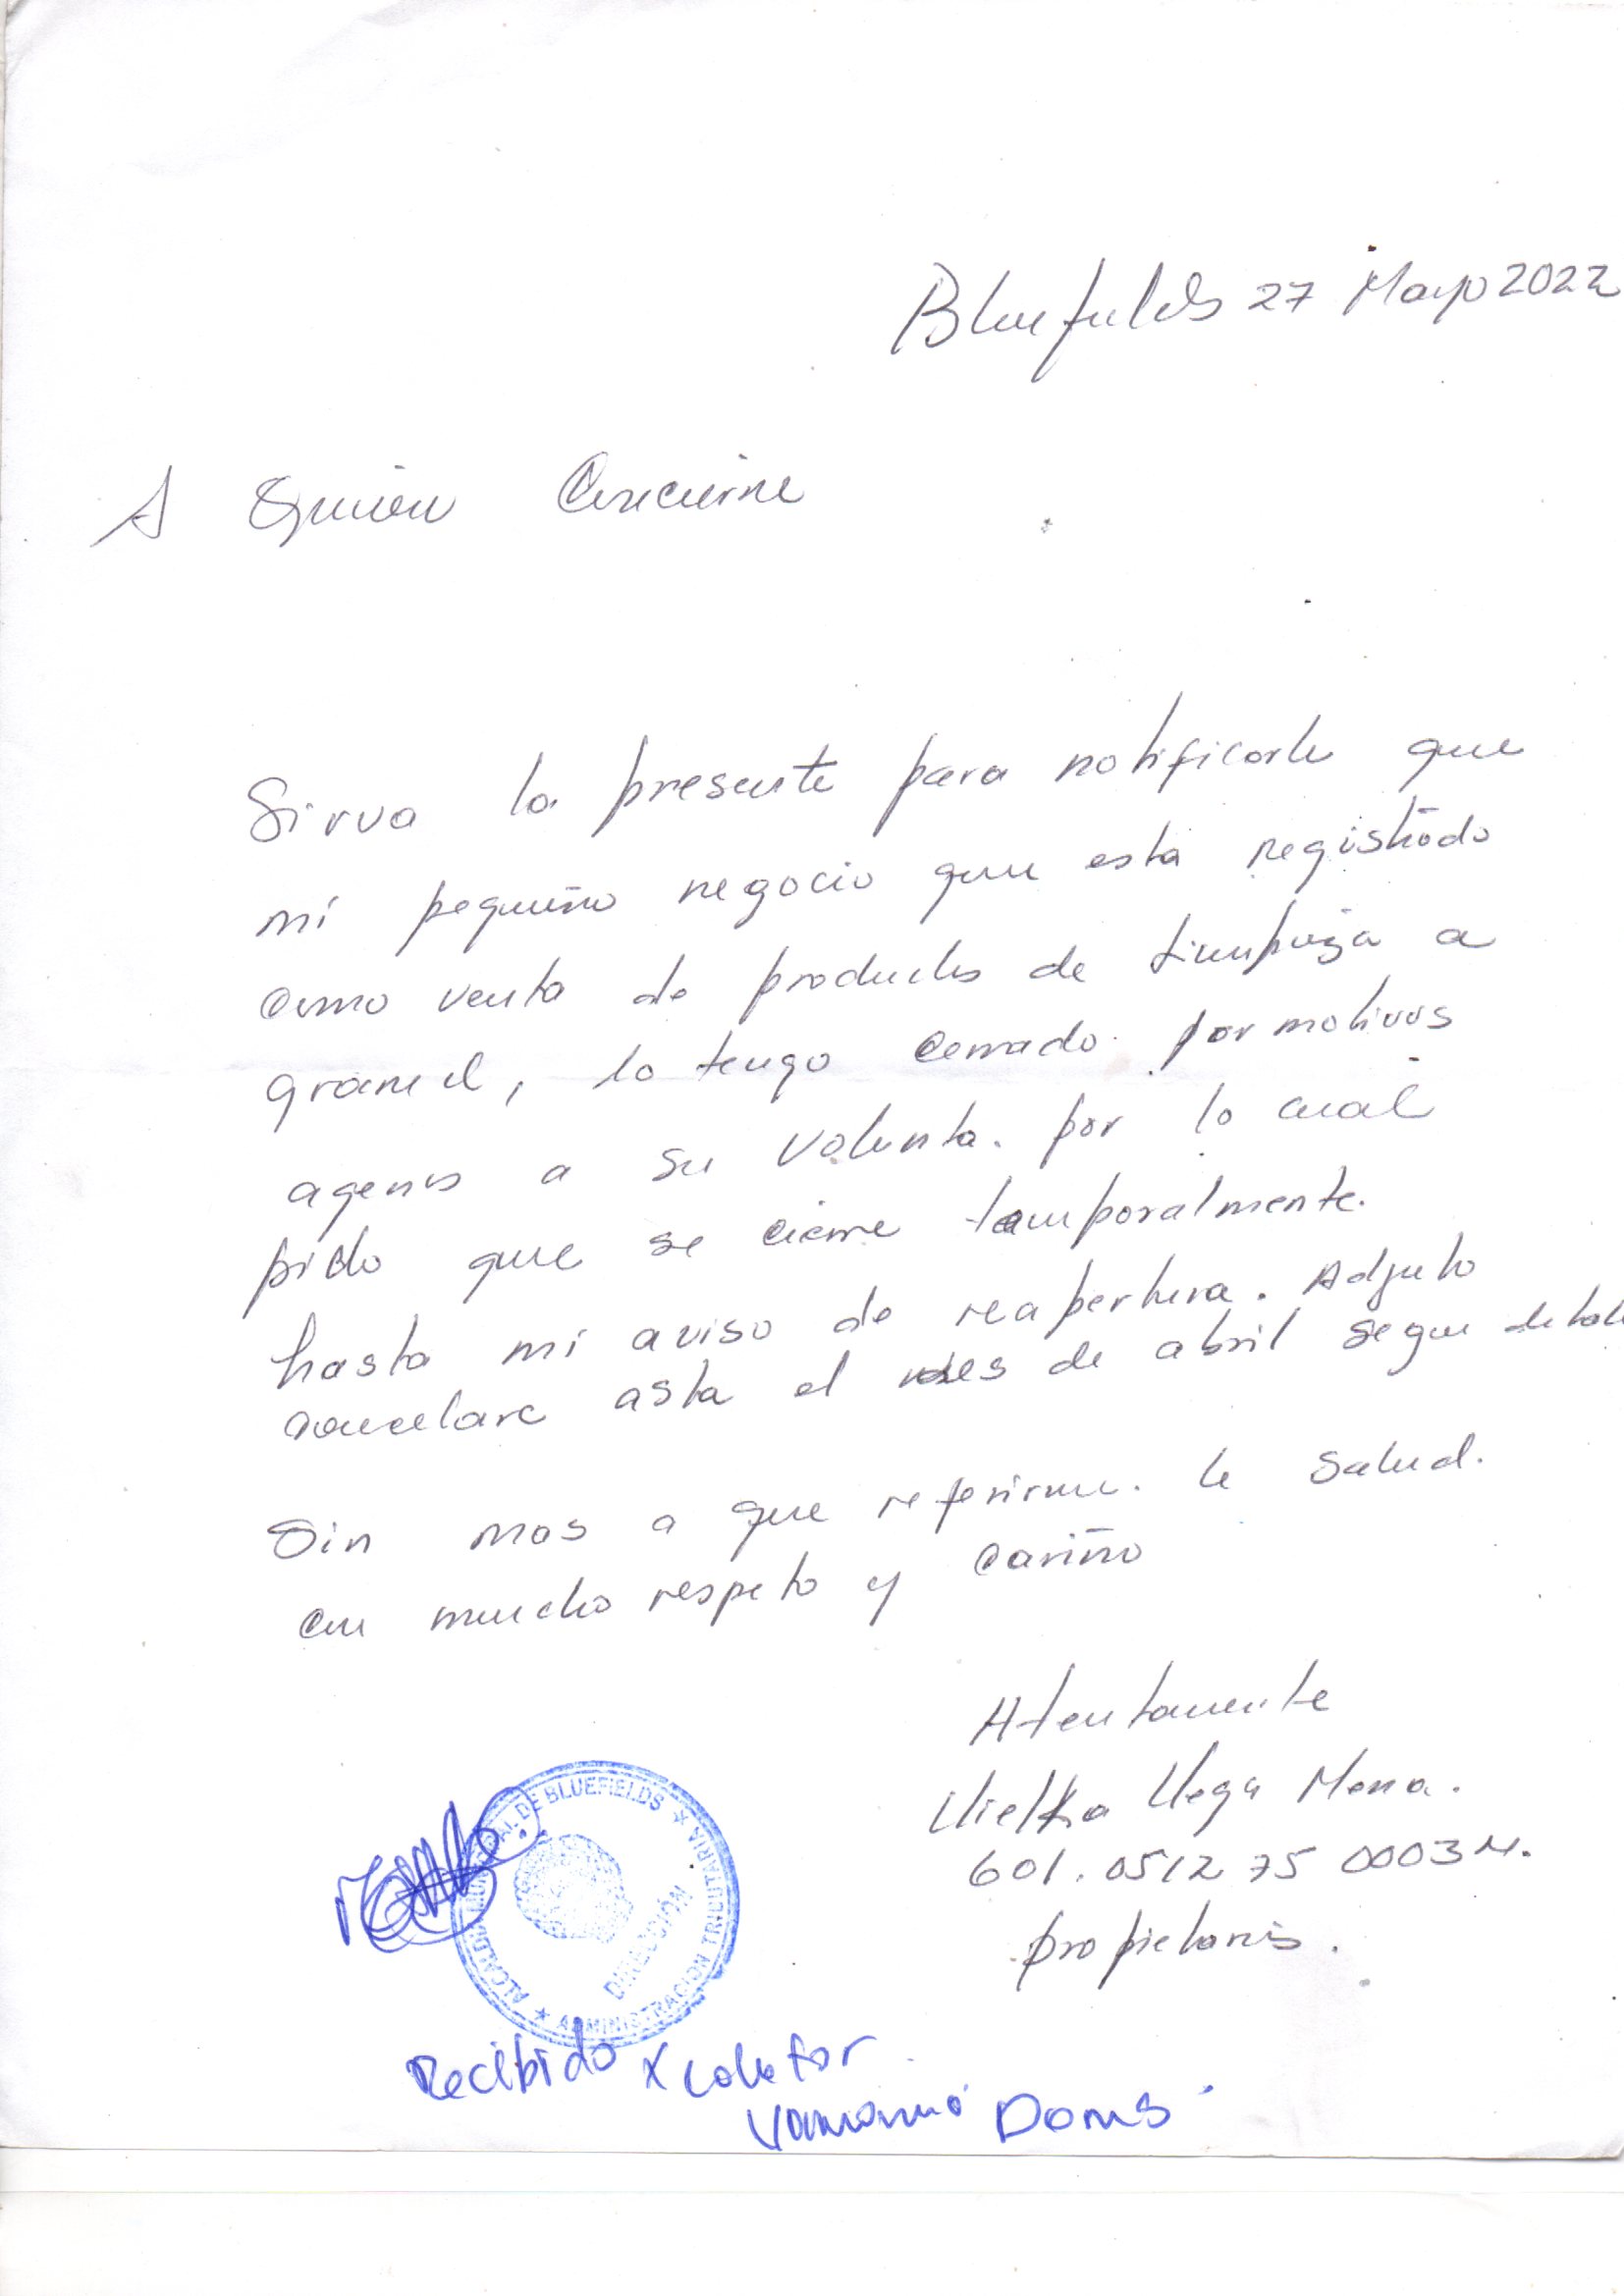 Bluefields 27 Mayo 2022
A Quien Concierne
Sirva la presente para notificarle que
mi pequeño negocio que está registrado
como venta de productos de limpieza a
granel, lo tengo cerrado. por motivos
agenos a su volunta. por lo cual
pido que se cierre temporalmente.
hasta mi aviso de reapertura. Adjuto
cancelare asta el mes de abril segun detalle
Sin mas a que referirme. le salud.
con mucho respeto y cariño
Atentamente
Vielka Vega Mena.
601.0512 75 0003M.
propietaria.
ALCALDIA MUNICIPAL DE BLUEFIELDS
DIRECCIÓN
ADMINISTRACIÓN TRIBUTARIA
Recibido x colector